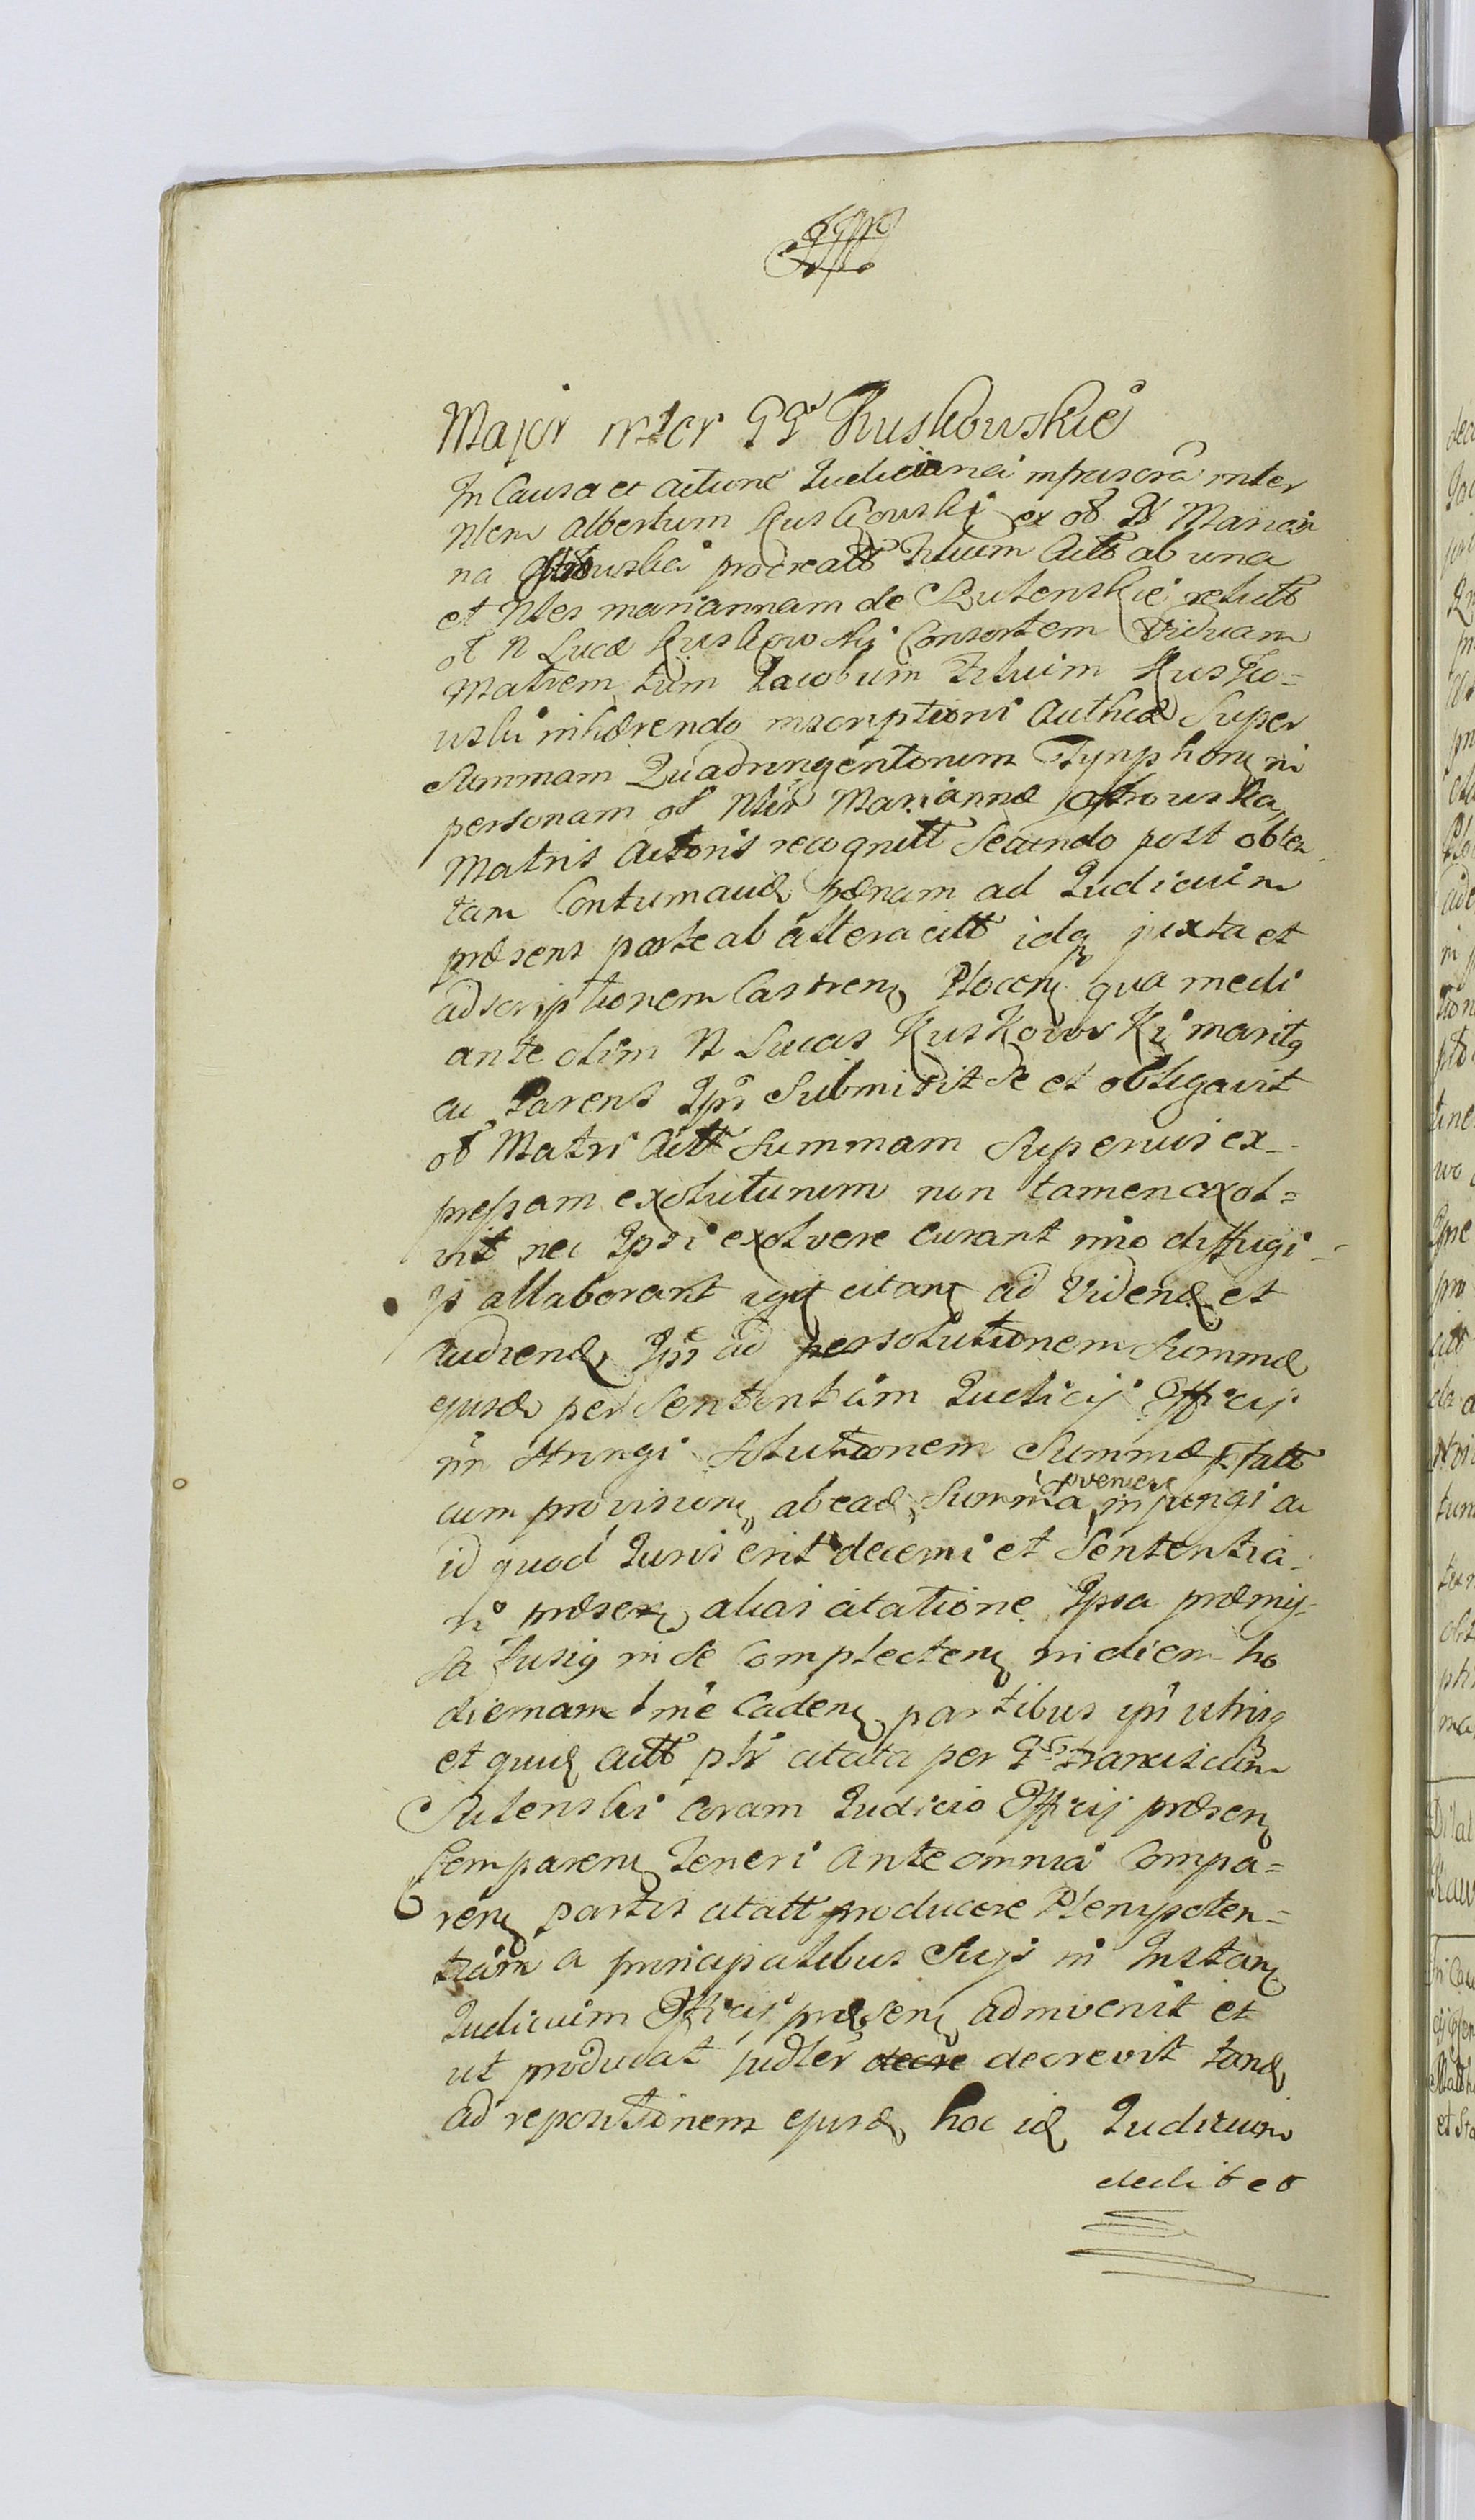 Major inter GG Kuskowskie
In Causa et actione Judiciaria infrascra inter
Nlem Albertum Kuskowski ex ol N Marian
na procreatt Filium Actt ab una
et Nles mariannam de Rutenskie relictt
ol N Lucæ Kuskowski Consortem Viduam
Matrem tum Jacobum Filium Kusko=
wski inhærendo inscriptioni Authcæ Super
Summam Quadringentorum Tynphorum in
personam ol Nlis Mariannæ Ostrowska
Matris Actoris recognitt Secundo post obten
tam Contumaciæ pænam ad Judicium
præsens parte ab altera citt idq juxta et
adscriptionem Castrens Plocens qua medi
ante olim N Lucas Kuskowski maritg
ac Parens Ipsor Submisit Se et obligavit
ol Matri Actt Summam Superius ex-
pressam exoluturum non tamen exol=
vit nec Ipsi exolvere curant imo diffugi-
js allaborant igit citant ad Videnđ et
audienđ Ipsos ad persolutionem Summæ
ejusđ per Sententiam Judicij Officij
ni Stringi Solutionem Summæ
cum provisione ab eađ Summa provenien injungi ac
id quod Juris erit decerni et Sententia
ri præsens alias citatione Ipsa præmis-
sa fusig in Se Complectens in diem ho
diernam tme Cadens partibus ipsis utrisq
et quidem actt plr citata per G Franciscum
Rutenski Coram Judicio Officij præsens
Comparens Teneri ante omnia Compa=
rens partis citatt producere Plenipoten=
tiam a principalibus Suis in Instans
Judicium Officij præsens adinvenit et
ut producat judlr decre decrevit tanđ
ad repositionem ejusđ hoc iđ Judicium